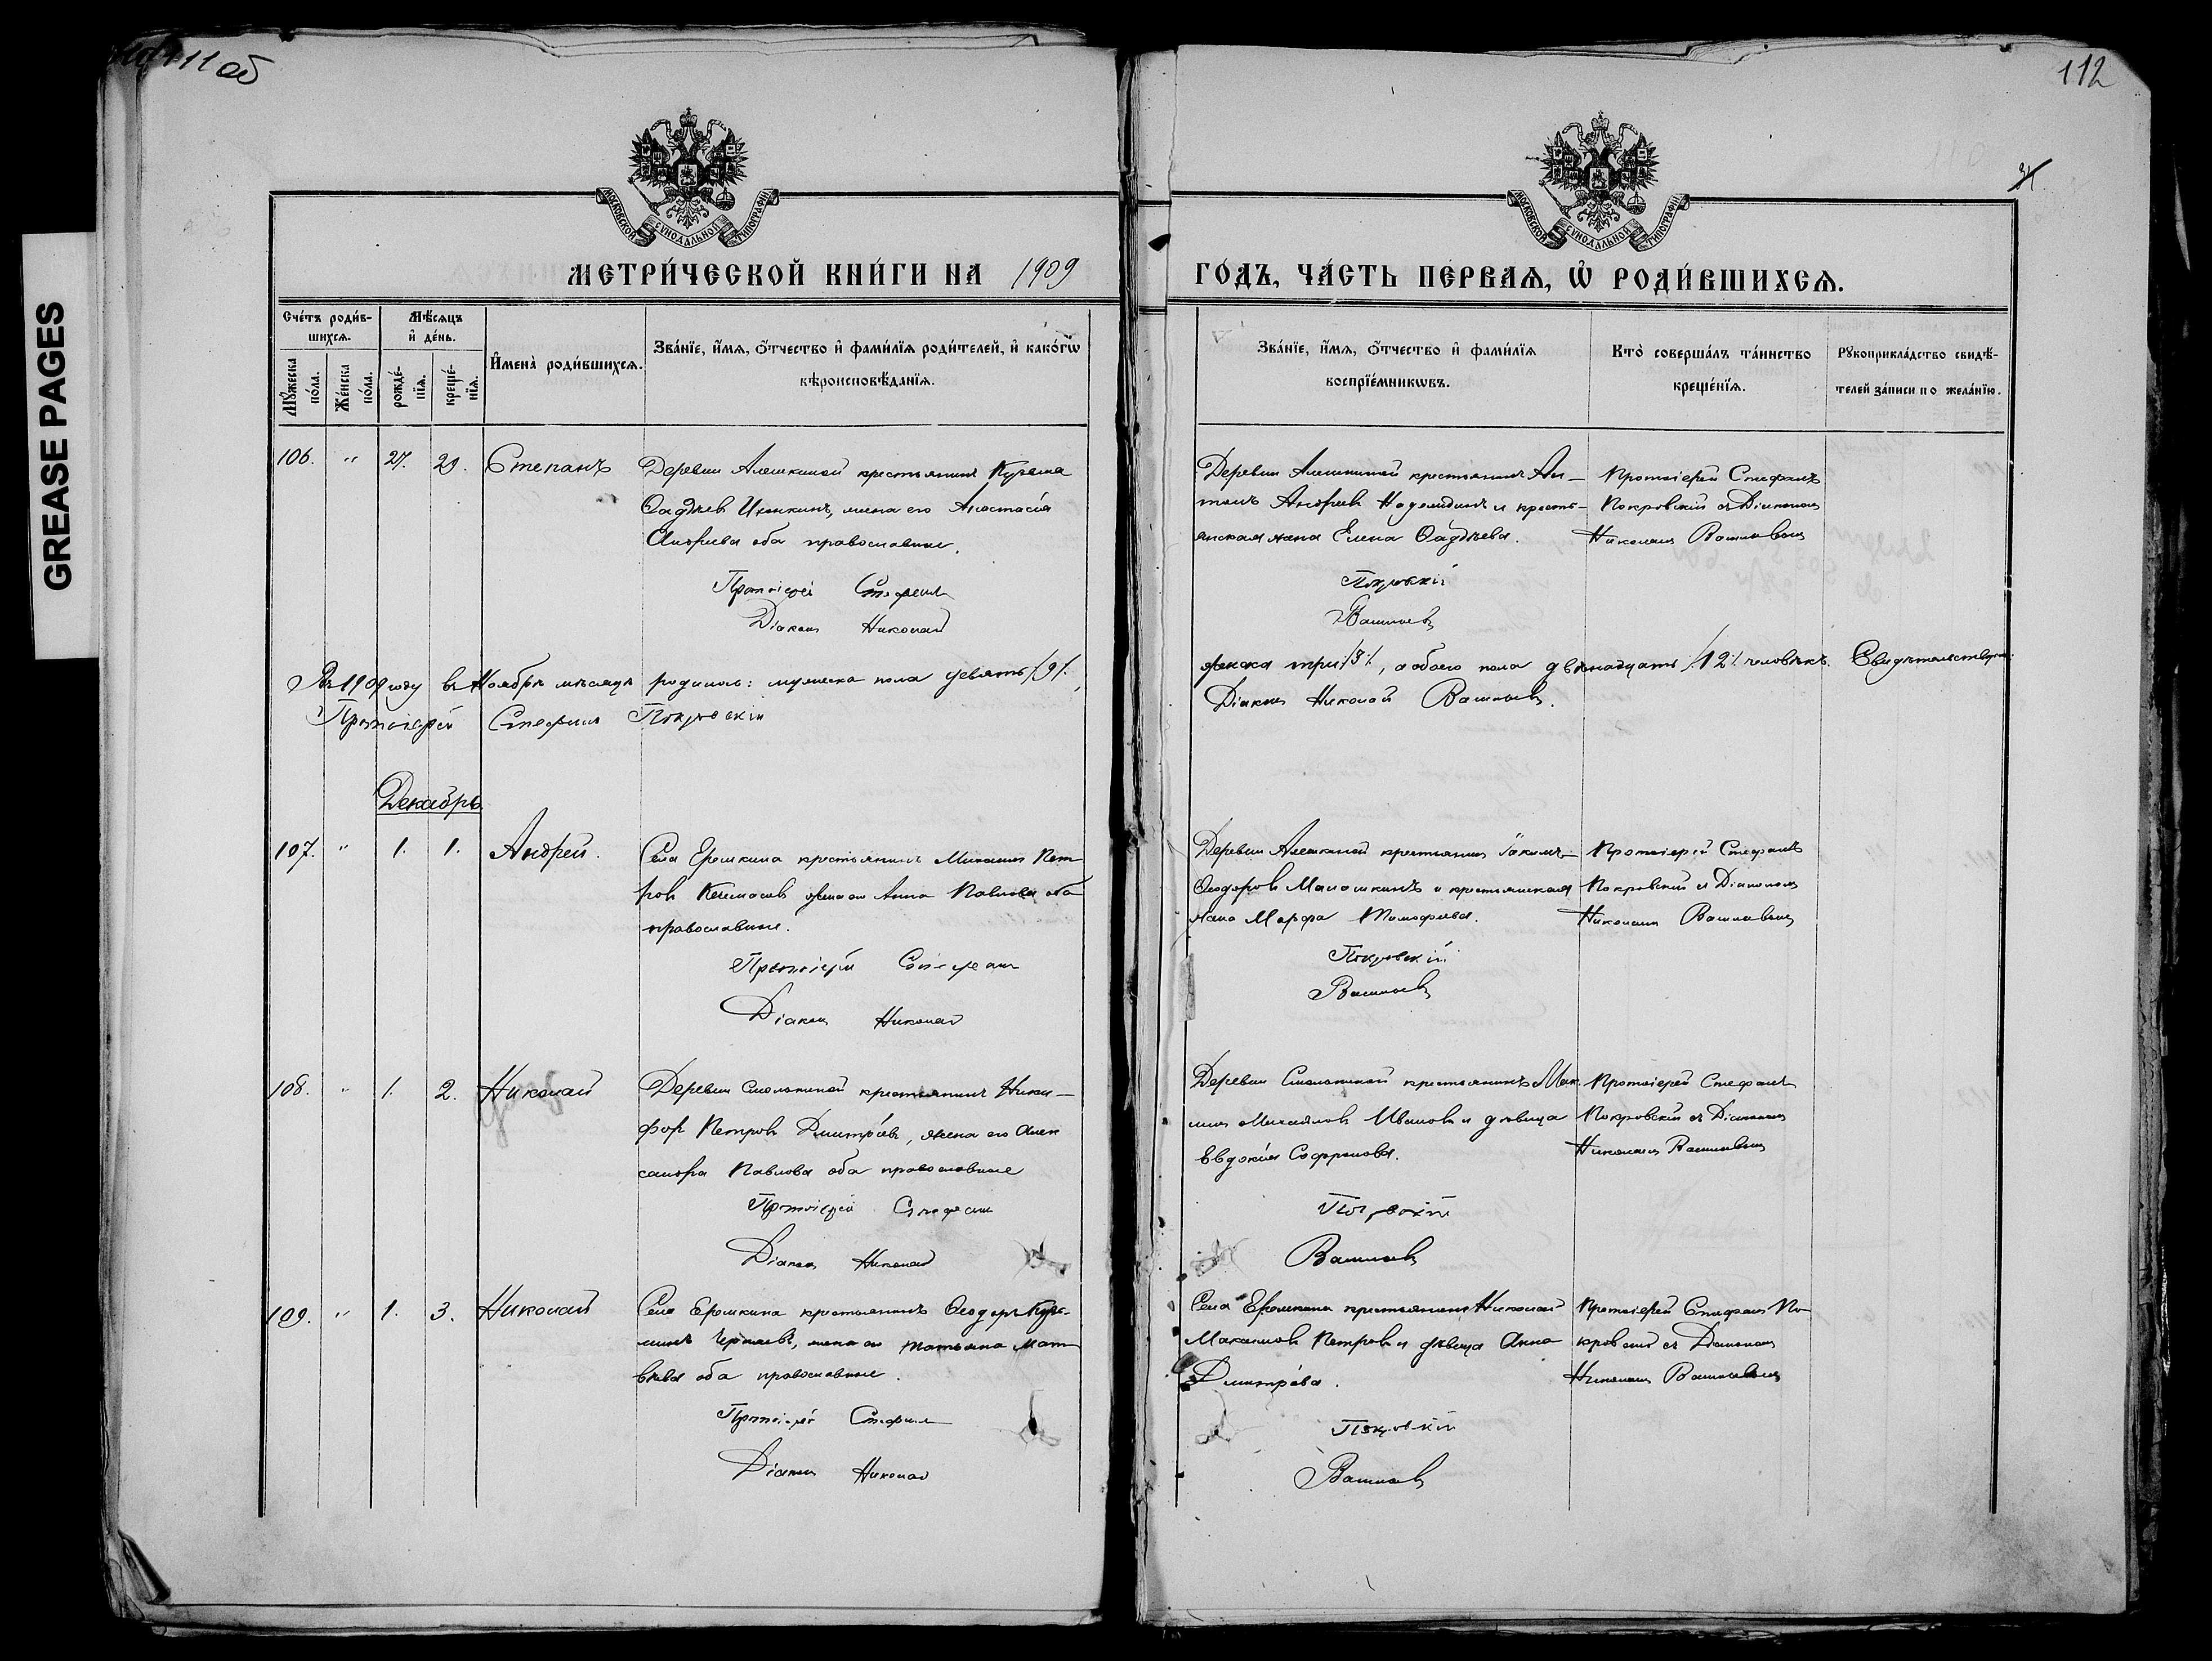 111 об
112
GREASE PAGES
МОСКОВСКОЙ СУНОДАЛЬНОЙ ТИПОГРАФІИ
МОСКОВСКОЙ СУНОДАЛЬНОЙ ТИПОГРАФІИ
МЕТРИ́ЧЕСКОЙ КНИ́ГИ НА 1909
ГО́ДЪ, ЧА́СТЬ ПЕ́РВАѦ, Ѿ РОДИ́ВШИХСѦ.
Сче́тъ роди́в-
шихсѧ.
Мѣ́сѧцъ
и҆ де́нь.
Мꙋ́жеска
по́ла.
Же́нска
по́ла.
рожде́-
нїѧ.
креще́-
нїѧ.
И҆мена̀ роди́вшихсѧ.
Зва́нїе, и҆́мѧ, ѻ҆́тчество и҆ фами́лїѧ роди́телей, и҆ како́гѡ
вѣроисповѣ́данїѧ.
Зва́нїе, и҆́мѧ, ѻ҆́тчество и҆ фами́лїѧ
воспрїе́мникѡвъ.
Кто̀ соверша́лъ та́инство
креще́нїѧ.
Рꙋкоприкла́дство свидѣ́-
телей за́писи по жела́нїю.
106. " 27. 29. Степанъ
Деревни Алешкиной крестьянинъ Кузьма
Ѳаддѣевъ, жена его Анастасія
Андреева оба православные.
Протоіерей Стефанъ
Діаконъ Николай
Деревни Алешкиной крестьянинъ Ан-
тонъ Андреевъ и кресть-
янская жена Елена Ѳаддѣева.
Покровскій
Протоіерей Стефанъ
Покровскій съ Діакономъ
Николаемъ
Въ 1909 году въ Ноябрѣ мѣсяцѣ родилось: мужеска пола девять /9/,
женска три /3/, а обоего пола двѣнадцать /12/ человѣкъ. Свидѣтельствуютъ:
Протоіерей Стефанъ Покровскій
Діаконъ Николай
Декабрь
107. " 1. 1. Андрей.
Села Ерошкина крестьянинъ Михаилъ Пет-
ровъ жена его Анна Павлова оба
православные.
Протоіерей Стефанъ
Діаконъ Николай
Деревни Алешкиной крестьянинъ Іаковъ
Ѳеодоровъ Малашкинъ и крестьянская
жена Марфа Тимофеева.
Покровскій
Протоіерей Стефанъ
Покровскій съ Діакономъ
Николаемъ
108. " 1. 2. Николай
Деревни Смолькиной крестьянинъ Ники-
форъ Петровъ Дмитріевъ, жена его Алек
сандра Павлова оба православные
Протоіерей Стефанъ
Діаконъ Николай
Деревни Смолькиной крестьянинъ Мак
симъ Михайловъ Ивановъ и дѣвица
Евдокія Софронова.
Покровскій
Протоіерей Стефанъ
Покровскій съ Діакономъ
Николаемъ
109. " 1. 3. Николай
Села Ерошкина крестьянинъ Ѳеодоръ Кузь-
минъ, жена его Татьяна Мат
вѣева оба православные.
Протоіерей Стефанъ
Діаконъ Николай
Села Ерошкина крестьянинъ Николай
Максимовъ Петровъ и дѣвица Анна
Дмитріева.
Покровскій
Протоіерей Стефанъ По
кровскій съ Діакономъ
Николаемъ